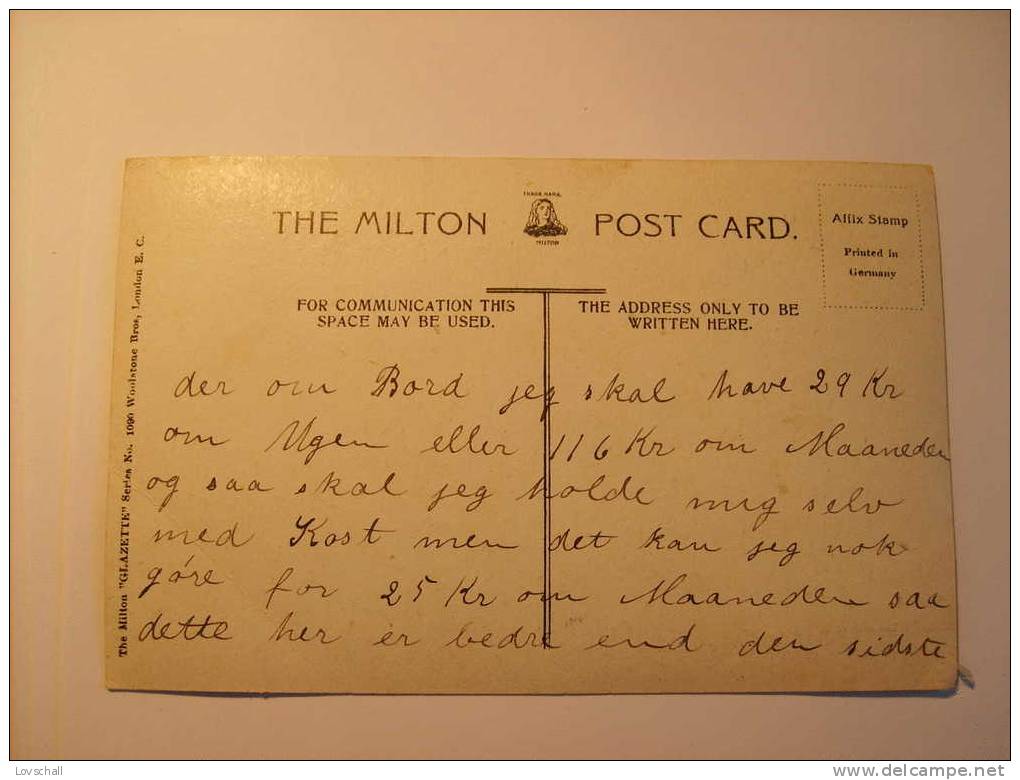 TRADE MARK.
THE MILTON POST CARD.
MILTON
Affix Stamp
Printed in
Germany
FOR COMMUNICATION THIS
SPACE MAY BE USED.
THE ADDRESS ONLY TO BE
WRITTEN HERE.
The Milton "GLAZETTE" Series No. 1090 Woolstone Bros, London E. C.
der om Bord jeg skal have 29 Kr
om Ugen eller 116 Kr om Maaneden
og saa skal jeg holde mig selv
med Kost men det kan jeg nok
góre for 25 Kr om Maaneden saa
dette her er bedre end den sidste
Lovschall
delcampe.net